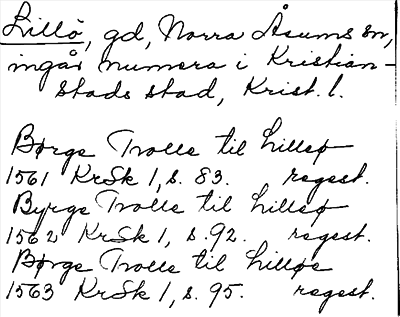 Lillö, gd, Norra Åsums sn,
ingår numera i Kristian-
stads stad, Krist. l.
Børge Trolle til Lillsø
1561 KrSk 1, s. 83. regest.
Byrge Trolle til Lillsø
1562 KrSk 1, s. 92. regest.
Børge Trolle til Lilløe
1563 KrSk 1, s. 95. regest.